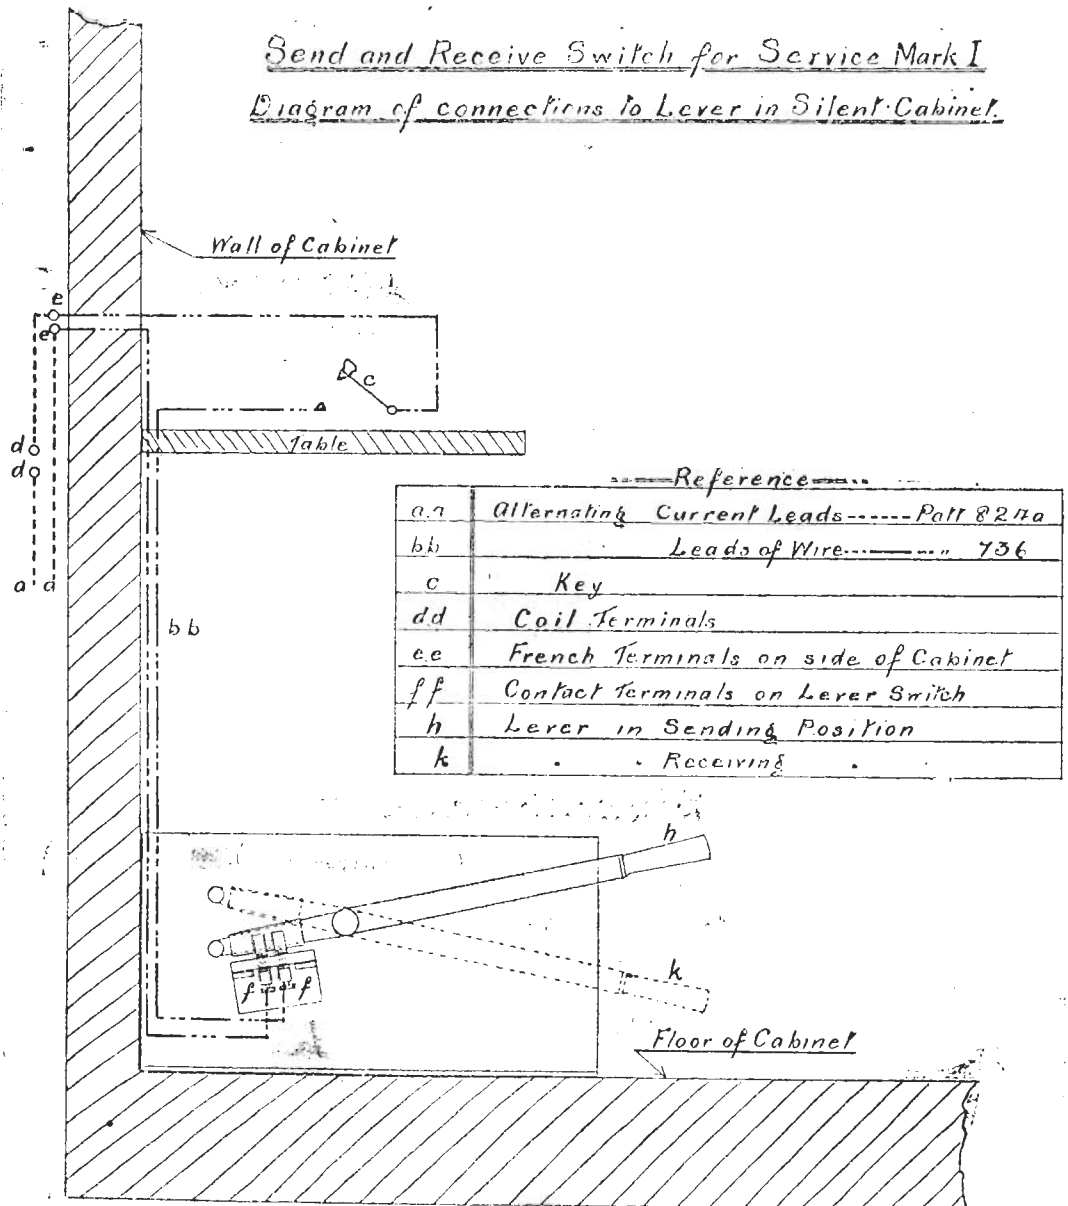 Send and Receive Switch for Service Mark I
Diagram of connections to Lever in Silent Cabinet.
Wall of Cabinet
e
e
c
d
d
Table
Reference
a.a Alternating Current Leads ------ Patt
bb Leads of Wire ------ " 736
a a
c Key
dd Coil Terminals
bb
e.e French Terminals on side of Cabinet
ff Contact Terminals on Lever Switch
h Lever in Sending Position
k " " Receiving "
h
k
f f
Floor of Cabinet